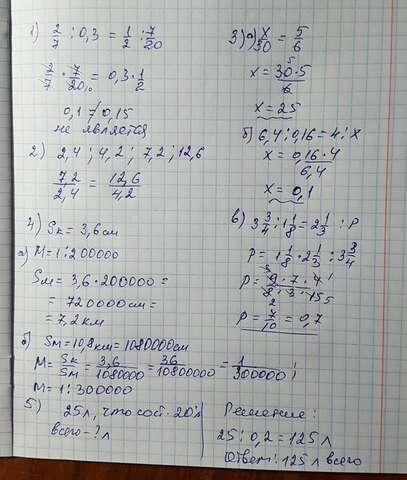 1) 2/7 : 0,3 = 1/2 : 7/20
2/7 · 7/20 = 0,3 · 1/2
0,1 ≠ 0,15
не является
2) 2,4 ; 4,2 ; 7,2 ; 12,6
7,2/2,4 = 12,6/4,2
4) Sк = 3,6 см
а) М = 1 : 200000
Sм = 3,6 · 200000 =
= 720000 см =
= 7,2 км
б) Sм = 10,8 км = 1080000 см
М = Sк/Sм = 3,6/1080000 = 36/10800000 = 1/300000 ;
М = 1 : 300000
5) 25 л, что сост. 20%
всего - ? л
3) а) x/30 = 5/6
x = 30 · 5/6
x = 25
б) 6,4 : 0,16 = 4 : x
x = 0,16 · 4/6,4
x = 0,1
в) 3 3/4 : 1 1/8 = 2 1/3 : p
p = 1 1/8 · 2 1/3 : 3 3/4
p = 9 · 7 · 4/8 · 3 · 15
p = 7/10 = 0,7
Решение:
25 : 0,2 = 125 л
Ответ: 125 л всего